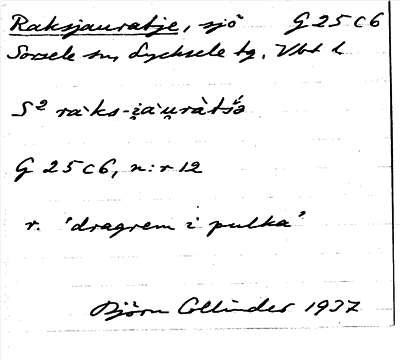 Raksjauratje, sjö G 25 C 6
Sorsele sn, Lycksele tg, Vbt l
S² rạ̀ks-i̯ạ̀u̯rạ̀tš́ə
G 25 C 6, n:r 12
r. 'dragrem i pulka'
Björn Collinder 1937